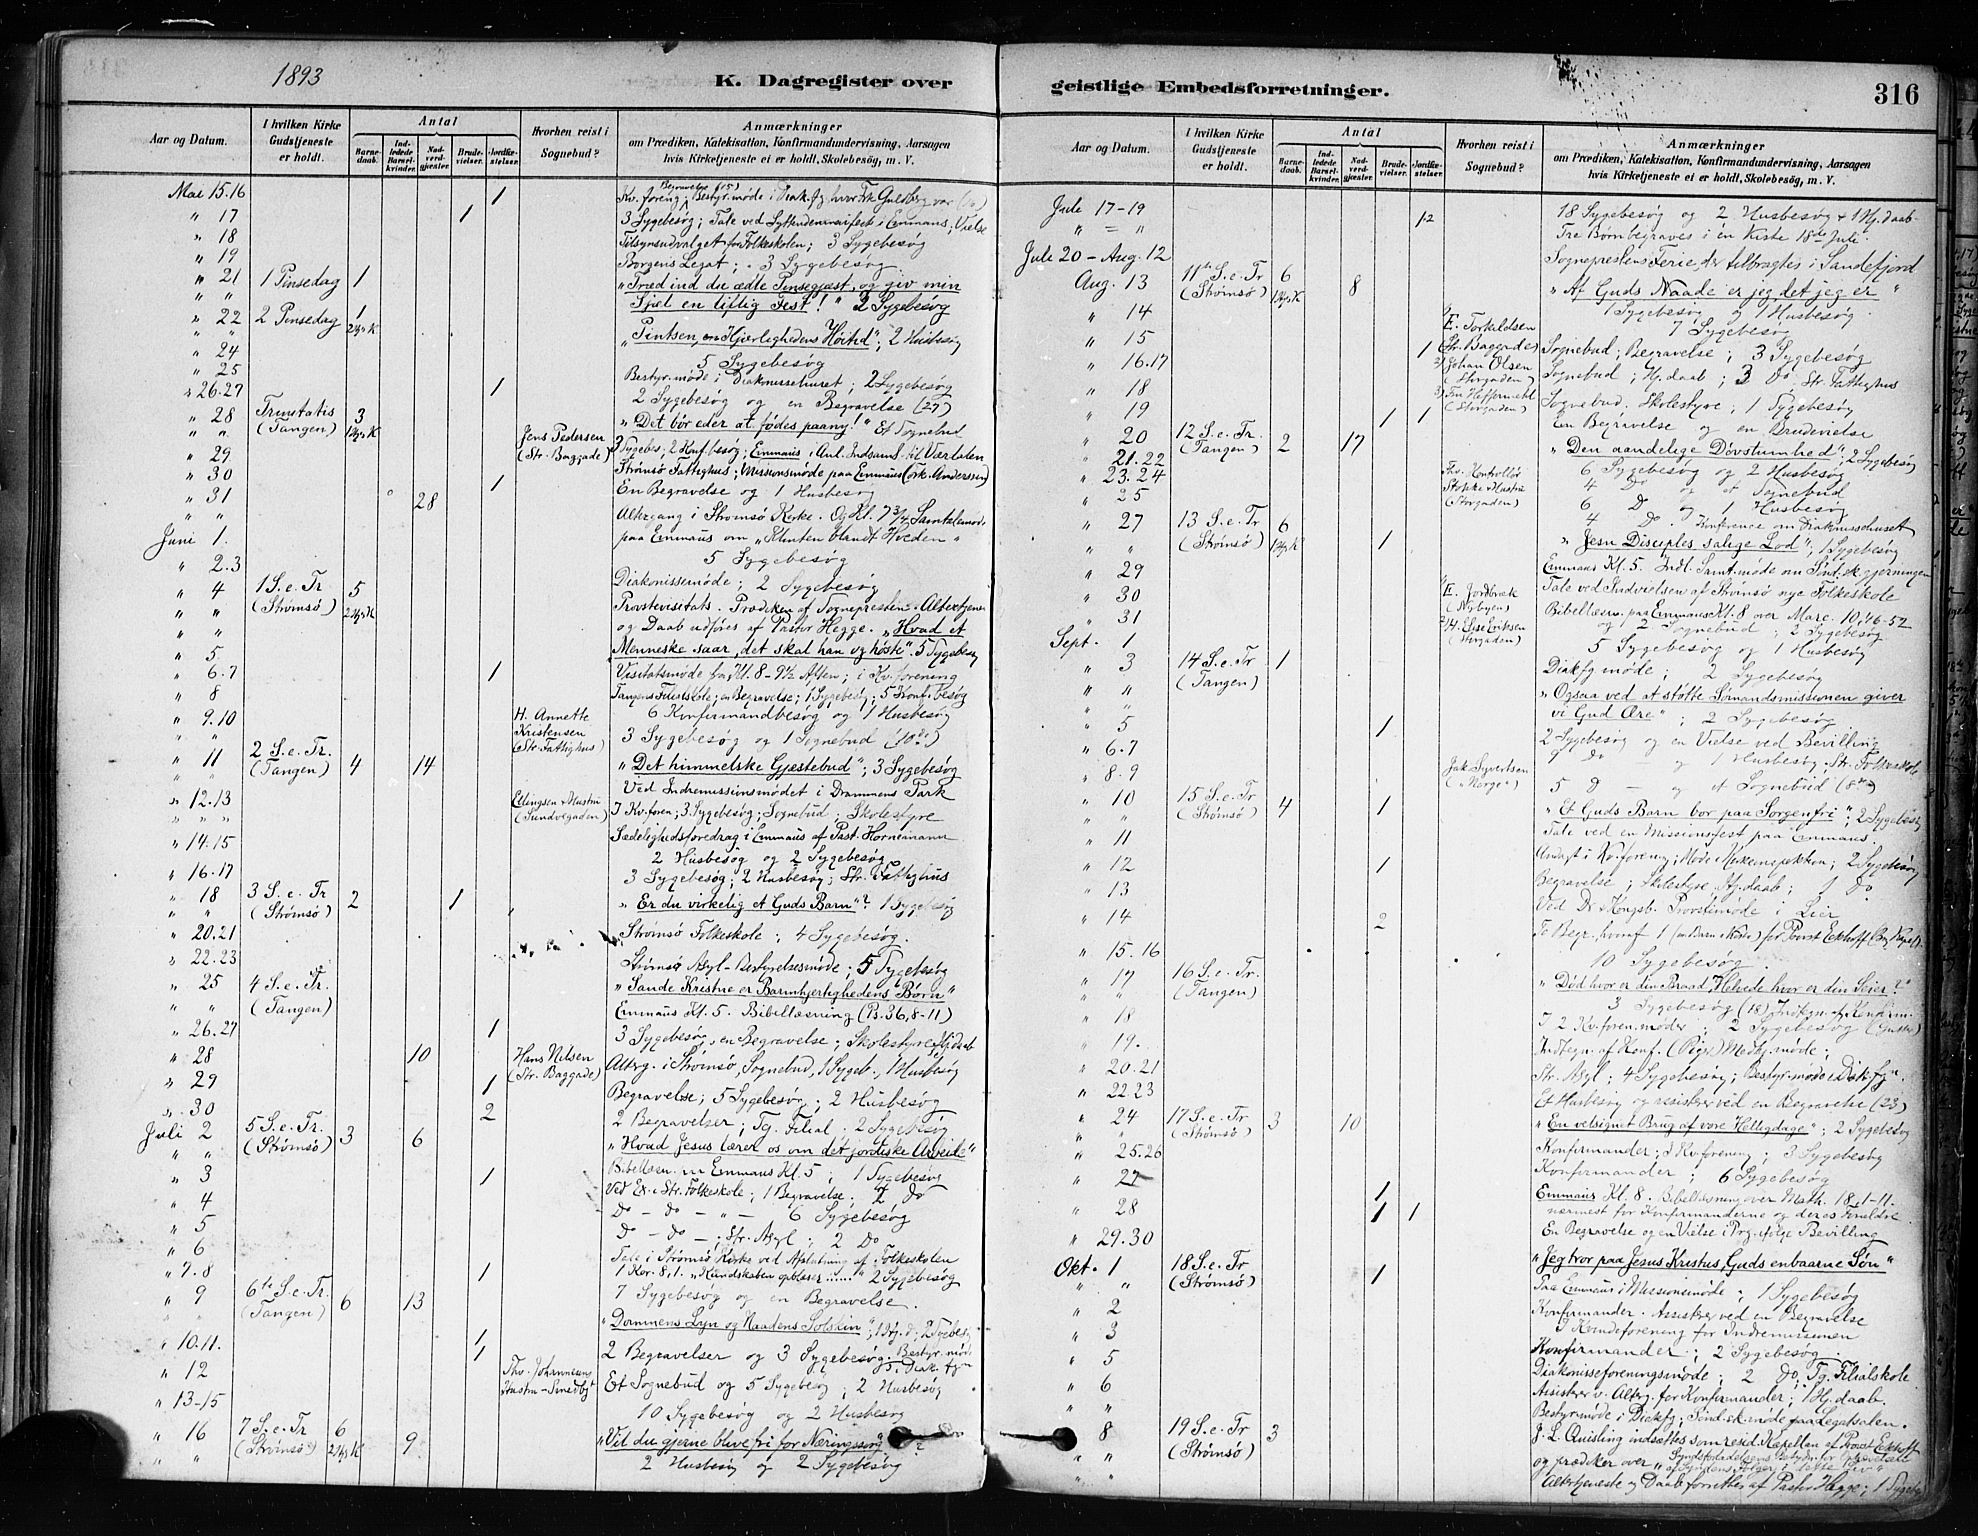 1893
K. Dagregister over
geistlige Embedsforretninger.
316
Aar og Datum.
I hvilken Kirke Gudstjeneste er holdt.
Antal
Barnedaab.
Indledede Barselkvinder.
Nadverdgjæster.
Brudevielser.
Jordfæstelser.
Hvorhen reist i Sognebud?
Anmærkninger
om Prædiken, Katekisation, Konfirmandundervisning, Aarsagen
hvis Kirketjeneste ei er holdt, Skolebesög, m. V.
Mai 15.16 1 Kv. foreng. Begravelse (15) Bestyr. møde i Diak. fg. hvor Frk Guldberg var
" 17 1 3 Sygebesøg; Tale ved i Emmaus; Vielse
" 18 Tilsynsudvalget for Folkeskolen; 3 Sygebesøg
" 19 Borgens Legat; 3 Sygebesøg
" 21 1 Pinsedag 1 "Træd ind du ædle Pinsegjæst, og giv min
" " Sjæl en liflig Fest!" 2 Sygebesøg
" 22 2 Pinsedag 1 "Pintsen, en Hjærlighedens Høitid"; 2 Husbesøg
" 24 5 Sygebesøg
" 25 Bestyr. møde i Diakonissehuset; 2 Sygebesøg
" 26.27 1 2 Sygebesøg og en Begravelse (27)
" 28 Trinitatis 3 "Det bør eder at fødes paany!" Et Sognebud
" " (Tangen) 1 Hjs K Jens Pedersen
" 29 (Str. Baggade) 3 Sygebes; 2 Konf. besøg; Emmaus i Anl. Indsaml. til Værdalen
" 30 Strømsø Fattighus; Missionsmøde paa Emmaus
" 31 1 En Begravelse og 1 Husbesøg
" " 28 Altergang i Strømsø Kirke. Og Kl. 7 3/4 Samtalemøde
Juni 1. paa Emmaus om "Klinten blandt Hveden"
" 2.3 5 Sygebesøg
" 4 1 S. e. Tr 5 Diakonissemøde; 2 Sygebesøg
" " (Strømsø) 2 Hjs K Provstevisitats. Prædiken af Sognepresten. Altertjen.
" " og Daab udføres af Pastor Hegge. "Hvad et
" 5 Menneske saar, det skal han og høste". 5 Sygebesøg
" 6.7 1 Visitatsmøde fra Kl. 8 - 9 1/2 Aften; i Kv. forening
" 8 Tangens Filialskole; en Begravelse; 1 Sygebesøg; 5 Konf. besøg
" 9.10 H. Annette Kristensen (Str. Fattighus) 6 Konfirmandbesøg og 1 Husbesøg
3 Sygebesøg og 1 Sognebud (10de)
" 11 2 S. e. Tr. (Tangen) 4 14 "Det himmelske Gjæstebud"; 3 Sygebesøg
Ved Indremissionsmødet i Drammens Park
" 12.13 Ellingsen & Hustru I Kv. foren; 3 Sygebesøg; Sognebud; Skolestyre
" 14.15 Sædelighedsforedrag i Emmaus af Past. Hornemann
2 Husbesøg og 2 Sygebesøg
" 16.17 3 Sygebesøg; 2 Husbesøg; Str. Fattighus
" 18 3 S. e. Tr (Strømsø) 2 1 "Er du virkelig et Guds Barn"? 1 Sygebesøg
" 20.21 Strømsø Folkeskole; 4 Sygebesøg.
" 22.23 Strømsø Asyl-Bestyrelsesmøde; 5 Sygebesøg
" 25 4 S. e. Tr. "Sande Kristne er Barmhjertighedens Børn"
" " (Tangen) Emmaus Kl. 5. Bibellæsning
" 26.27 1 3 Sygebesøg, en Begravelse; Skolestyre, Hj. daab
" 28 10 Hans Nilsen (Str. Baggade) Alterg. i Strømsø, Sognebud, 1 Sygeb., 1 Husbesøg
" 29 1 Begravelse; 5 Sygebesøg; 2 Husbesøg
" 30 2 2 Begravelser; Tg. Filial. 2 Sygebesøg
Juli 2 5 S. e. Tr. (Strømsø) 3 6 "Hvad Jesus lærer os om det jordiske Arbeide"
" 3 Bibellæsn. i Emmaus Kl. 5; 1 Sygebesøg
" 4 1 Ved Ex. i Str. Folkeskole; 1 Begravelse. 2 Do
" 5 Do - Do - " - 6 Sygebesøg
" 6 Do - Do -; Str. Asyl; 2 Do
" 7.8 1 Tale i Strømsø Kirke ved Afslutning af Folkeskolen
1 Kor. 8,1. "Kundskaben opblæser ......" 2 Sygebesøg
" 9 6te S. e. Tr. (Tangen) 6 13 7 Sygebesøg og en Begravelse.
"Dommens Lyn og Naadens Solskin"; 2 Sygebesøg
" 10.11. 1 1 2 Begravelser og 3 Sygebesøg. Bestyr. møde i Diak. fg
" 12 Et Sognebud og 5 Sygebesøg; 2 Husbesøg
" 13-15 10 Sygebesøg og 2 Husbesøg
" 16 7 S. e. Tr (Strømsø) 6 2 Hjs K 9 "Vil du gjerne blive fri for Næringssorg"?
2 Husbesøg og 2 Sygebesøg
Aar og Datum.
I hvilken Kirke Gudstjeneste er holdt.
Antal
Barnedaab.
Indledede Barselkvinder.
Nadverdgjæster.
Brudevielser.
Jordfæstelser.
Hvorhen reist i Sognebud?
Anmærkninger
om Prædiken, Katekisation, Konfirmandundervisning, Aarsagen
hvis Kirketjeneste ei er holdt, Skolebesög, m. V.
Juli 17-19 12 18 Sygebesøg og 2 Husbesøg + 1 Hj. daab
" = " Tre Børn begraves i én Kiste 18de Juli.
Juli 20 - Aug. 12 Sogneprestens Ferie, der tilbragtes i Sandefjord
Aug. 13 11te S. e. Tr (Strømsø) 6 1 Hjs K 8 "Af Guds Naade er jeg det jeg er"
" 14 1 Sygebesøg og 1 Husbesøg.
" 15 E. Torkildsen (Str. Baggade) 7 Sygebesøg
" 16.17 1 2) Johan Olsen (Storgaden) Sognebud; Begravelse; 3 Sygebesøg
" 18 Sognebud; Hj. daab; 3 Do. Str. Fattighus
" 19 (Storgaden) Sognebud. Skolestyre; 1 Sygebesøg
1 1 En Begravelse og en Brudevielse
" 20 12 S. e. Tr. (Tangen) 2 17 "Den aandelige Døvstumhed"; 2 Sygebesøg
" 21.22 6 Sygebesøg og 2 Husbesøg
" 23.24 (Storgaden) 4 Do og et Sognebud
" 25 6 D og 1 Husbesøg
4 Do. Konference om Diakonissehuset
" 27 13 S. e. Tr (Strømsø) 6 1 Hjs K 1 "Jesu Disciples salige Lod"; 1 Sygebesøg
" 29 Emmaus Kl. 5. Indl. Samt. møde om
" 30 E. Jordbræk (Nybyen) Tale ved Indvielsen af Strømsø nye Folkeskole
" 31 2) H. Else Eriksen (Storgaden) Bibellæsn. paa Emmaus Kl. 8 over Marc. 10,46-52
og 2 Sognebud, 2 Sygebesøg
Sept. 1 5 Sygebesøg og 1 Husbesøg
" 3 14 S. e. Tr (Tangen) 1 Diakfg møde; 2 Sygebesøg
"Ogsaa ved at støtte Sømandsmissionen giver
vi Gud Ære"; 2 Sygebesøg
" 5 1 2 Sygebesøg og en Vielse ved Bevilling
" 6.7 7 Do og 1 Husbesøg; Str. Folkeskole
" 8.9 Jak Syvertsen 5 D - og et Sognebud (8de)
" 10 15 S. e. Tr (Strømsø) 4 1 "Et Guds Barn bor paa Sorgenfri"; 2 Sygebesøg
" 11 Tale ved en Missionsfest paa Emmaus.
" 12 1 Andagt i Kv. forening; Møde; 2 Sygebesøg
" 13 Begravelse; Skolestyre Hj. daab; 1 Do
" 14 2 Ved Dr. & Kongsb. Provstimøde i Lier
" 15.16 10 Sygebesøg
" 17 16 S. e. Tr. (Tangen) "Død hvor er din Braad, Helvede hvor er din Seier?"
3 Sygebesøg (18) Indtegn. af Konfirm.
" 18 I 2 Kv. foren. møder; 2 Sygebesøg
" 19. Indtegn. af Konf. (Piger)
" 20.21 Str. Asyl; 4 Sygebesøg; Bestyr. møde i Diak. fgn.
" 22.23 Et Husbesøg og assistrer ved en Begravelse (23)
" 24 17 S. e. Tr (Strømsø) 3 10 "En velsignet Brug af vore Helligdage"; 2 Sygebesøg
" 25.26 Konfirmander; i Kv. forening; 3 Sygebesøg
" 27 Konfirmander; 6 Sygebesøg
1 Emmaus Kl. 8. Bibellæsning over Math. 18,1-11.
" 28 1 1 nærmest for Konfirmanderne og deres Forældre
" 29.30 En Begravelse og en Vielse i Prg. ifølge Bevilling
Okt. 1 18 S. e. Tr (Strømsø) 1 "Jeg tror paa Jesus Kristus, Guds enbaarne Søn"
" 2 Paa Emmaus i Missionsmøde, 1 Sygebesøg
" 3 Konfirmander. Assistrer ved en Begravelse
I Kvindeforening for Indremissionen
" 5 Konfirmander; 2 Sygebesøg.
" 6 Diakonisseforeningsmøde; 2 Do, Tg. Filialskole
" " Assistrer v. Alterg. for Konfirmander; 1 Hj. daab.
" 8 19 S. e. Tr (Strømsø) 3 Bestyr. møde i Diakfg;
J. L. Quisling indsættes som resid. Kapellan af Provst Eckhoff
og prædiker over
Altertjeneste og Daab forrettes af Pastor Hegge; 1 Sygebes.